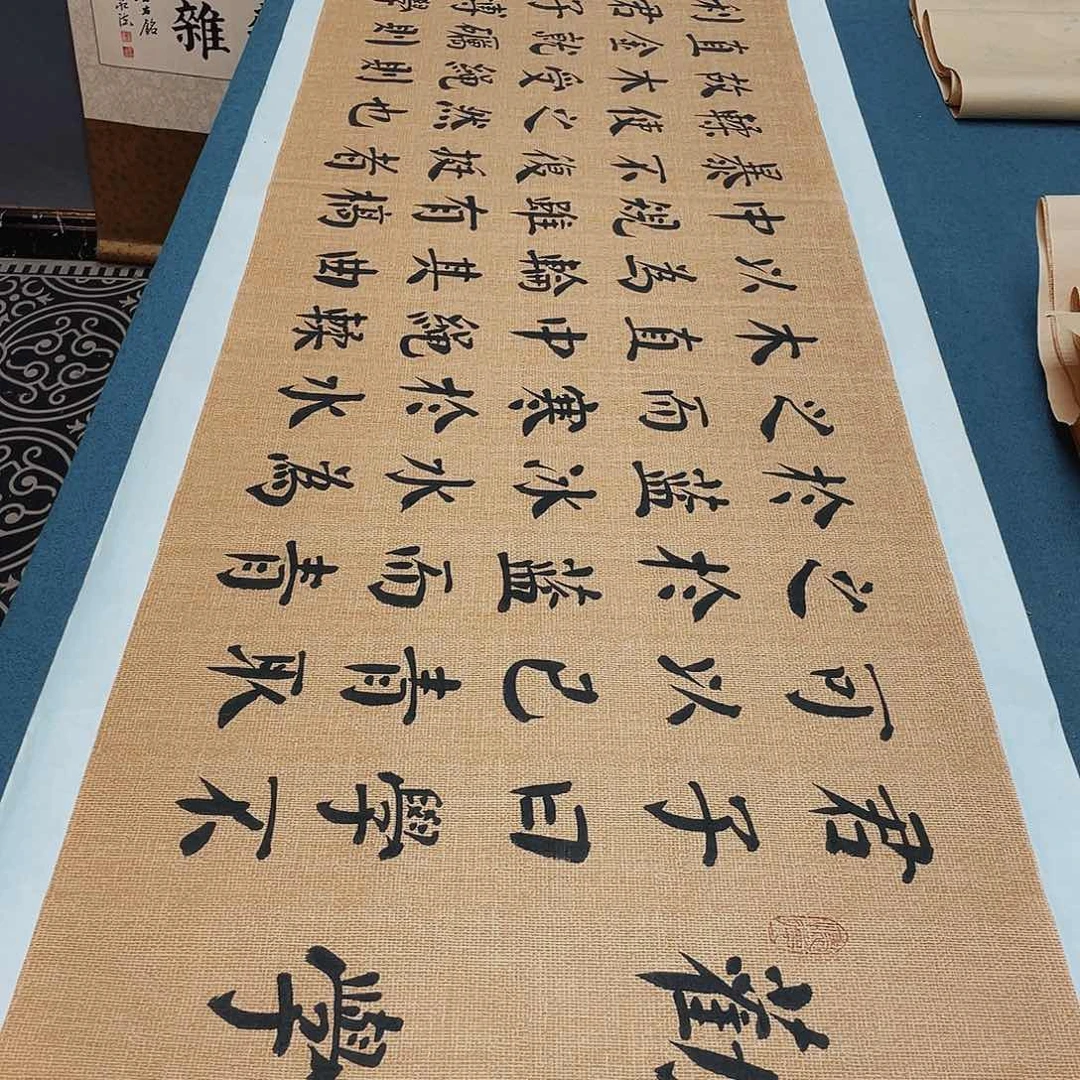 勸學
君子曰學不
可以已青取
之於藍而青
於藍冰水為
之而寒於水
木直中繩輮
以為輪其曲
中規雖有槁
暴不復挺者
輮使之然也
故木受繩則
直金就礪則
利君子博學
雜